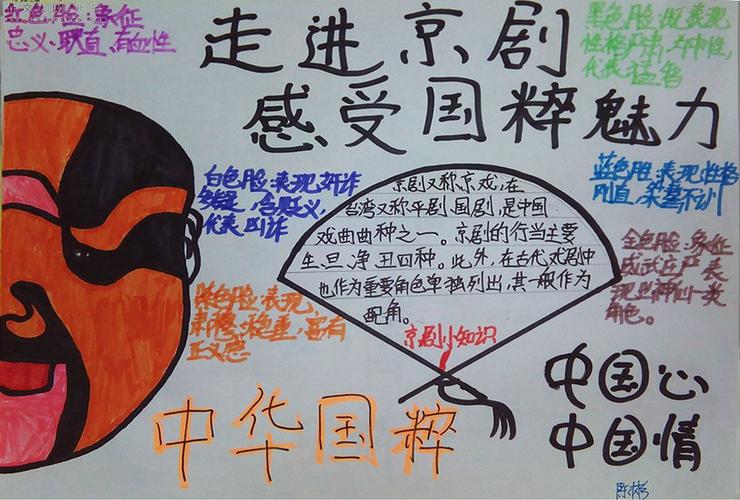 走进京剧
感受国粹魅力
紫色脸:象征
忠义、耿直、有血性
黑色脸:既表现
性格严肃,不苟
代表猛
白色脸:表现奸诈
多疑,含贬义,
代表凶诈
蓝色脸:表现性格
刚直,桀骜不训
金色脸:象征
威武庄严表
现神仙一类
角色。
表现
稳重,富有
正义感
京剧又称京戏,在
台湾又称平剧、国剧,是中国
戏曲曲种之一。京剧的行当主要
生、旦、净、丑四种。此外,在古代戏剧中
也作为重要角色单独列出,其一般作为
配角。
京剧小知识
中华国粹
中国心
中国情
陈彬